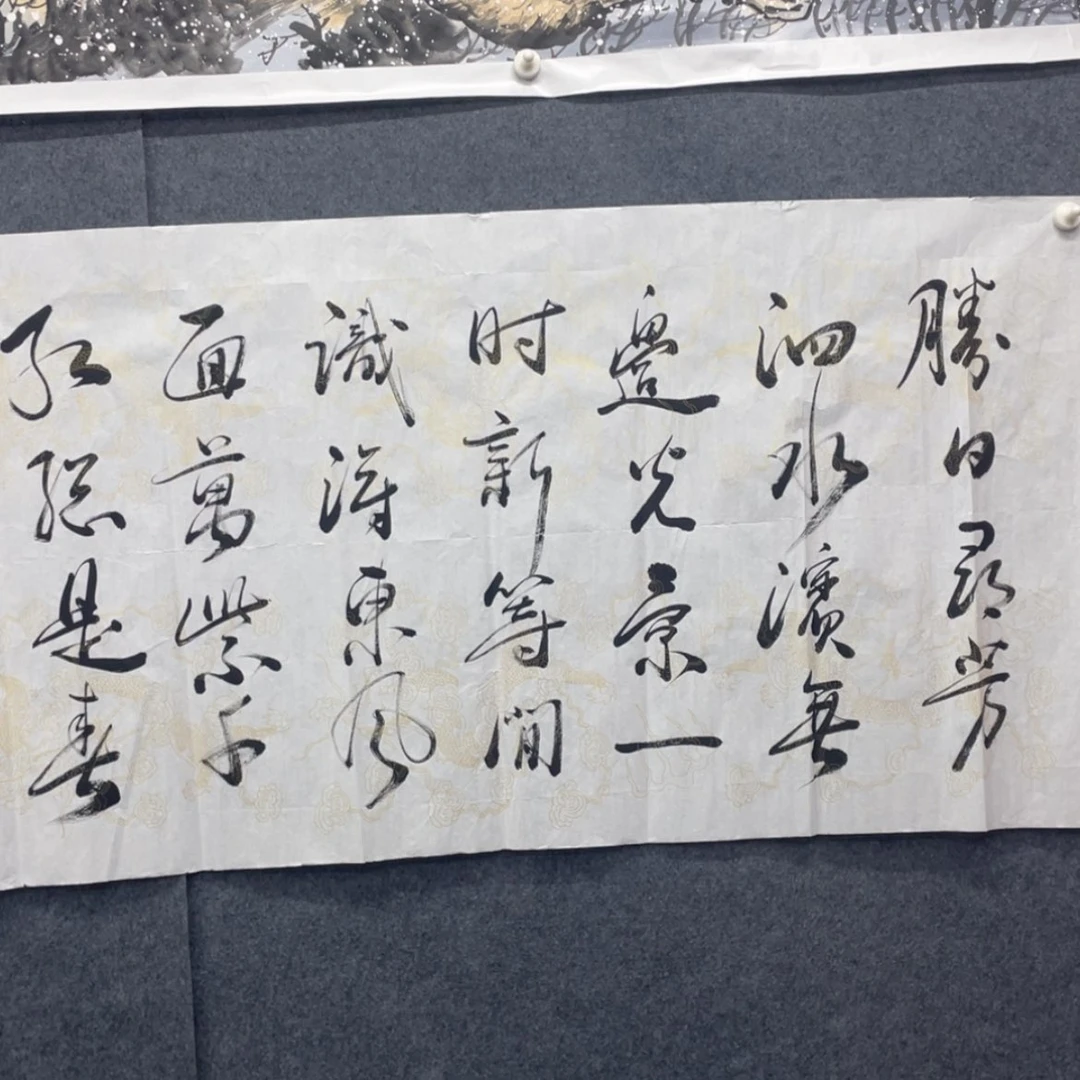 勝日尋芳
泗水濱無
邊光景一
时新等閒
識得東風
面萬紫千
紅總是春